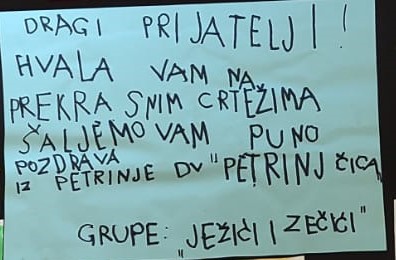 DRAGI PRIJATELJI!
HVALA VAM NA
PREKRASNIM CRTEŽIMA
ŠALJEMO VAM PUNO
POZDRAVA
IZ PETRINJE DV "PETRINJČICA
GRUPE: "JEŽIĆI I ZEČIĆI"